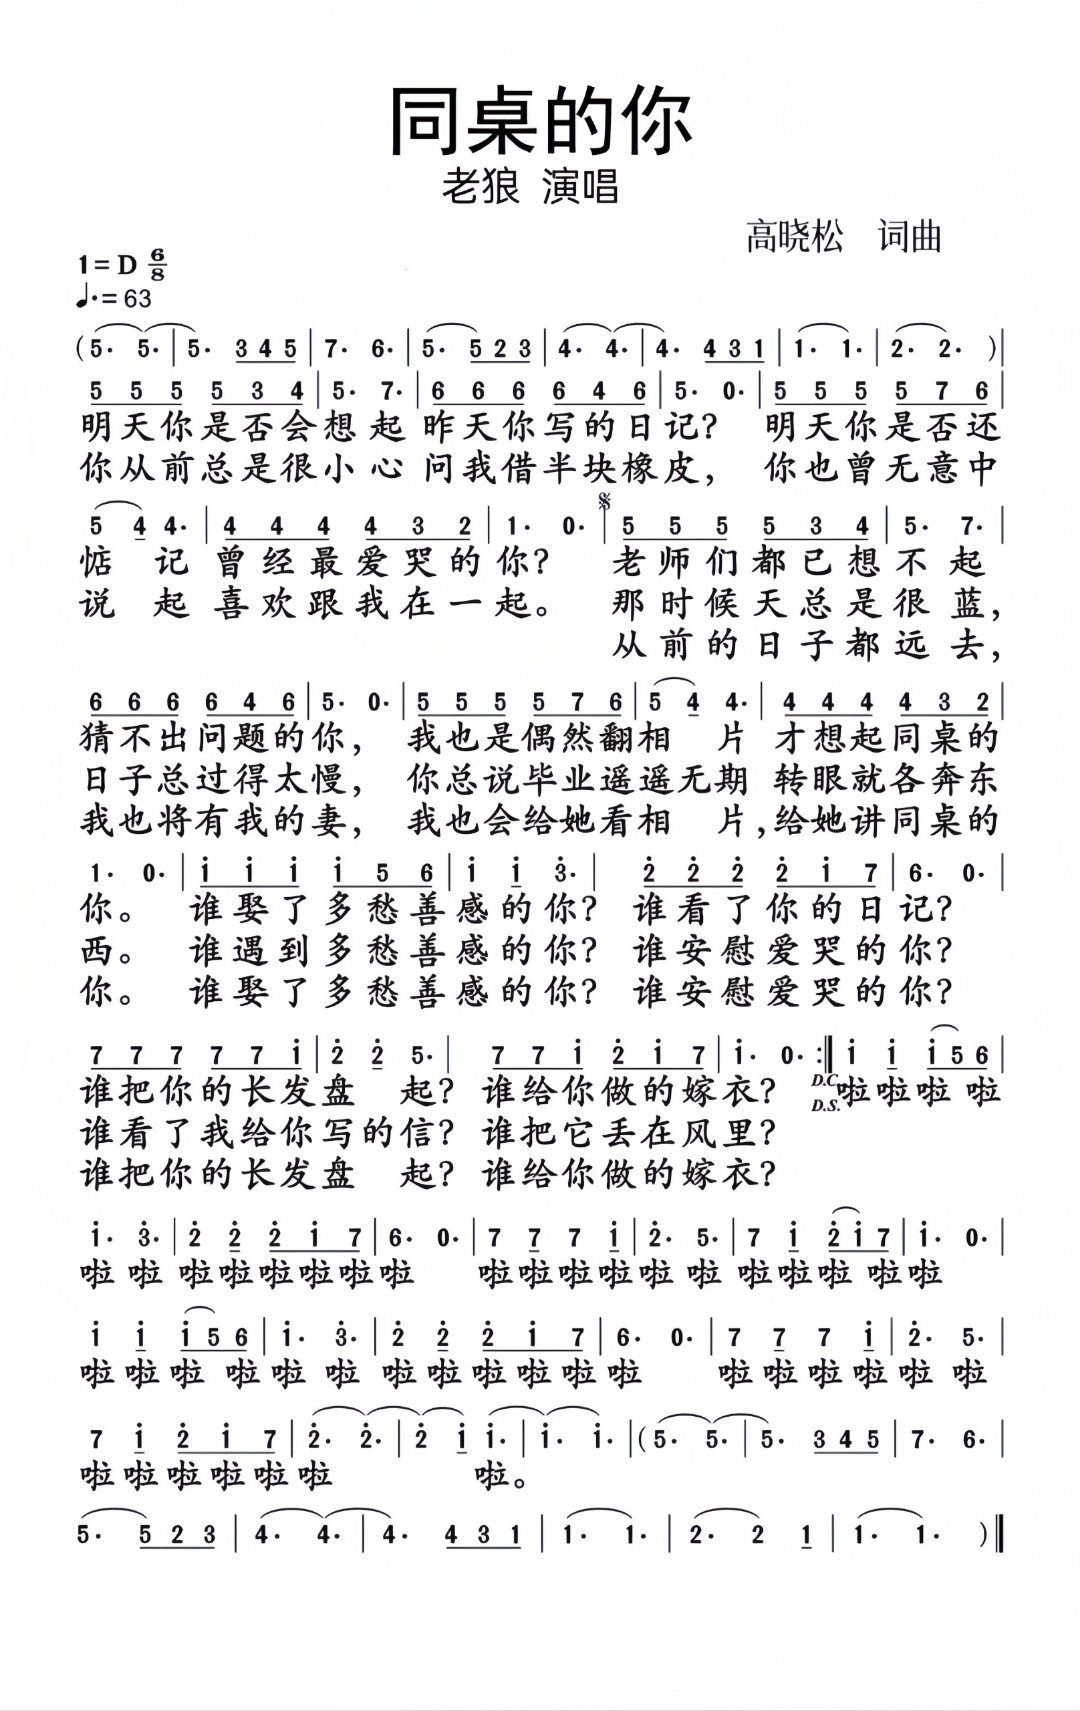 同桌的你
老狼 演唱
高晓松 词曲
1=D 6/8
♩.=63
(5. 5. | 5. 3 4 5 | 7. 6. | 5. 5 2 3 | 4. 4. | 4. 4 3 1 | 1. 1. | 2. 2. )|
5 5 5 5 3 4 | 5. 7. | 6 6 6 6 4 6 | 5. 0. | 5 5 5 5 7 6 |
明天你是否会想起 昨天你写的日记? 明天你是否还
你从前总是很小心 问我借半块橡皮, 你也曾无意中
5 4 4. | 4 4 4 4 3 2 | 1. 0. | 𝄋 5 5 5 5 3 4 | 5. 7. |
惦 记 曾经最爱哭的你? 老师们都已想不起
说 起 喜欢跟我在一起。 那时候天总是很蓝,
从前的日子都远去,
6 6 6 6 4 6 | 5. 0. | 5 5 5 5 7 6 | 5 4 4. | 4 4 4 4 3 2 |
猜不出问题的你, 我也是偶然翻相 片 才想起同桌的
日子总过得太慢, 你总说毕业遥遥无期 转眼就各奔东
我也将有我的妻, 我也会给她看相 片,给她讲同桌的
1. 0. | i i i i 5 6 | i i 3̇. | 2̇ 2̇ 2̇ 2̇ i 7 | 6. 0. |
你。 谁娶了多愁善感的你? 谁看了你的日记?
西。 谁遇到多愁善感的你? 谁安慰爱哭的你?
你。 谁娶了多愁善感的你? 谁安慰爱哭的你?
7 7 7 7 7 i | 2̇ 2̇ 5. | 7 7 i 2̇ i 7 | i. 0. :| i i i 5 6 |
谁把你的长发盘 起? 谁给你做的嫁衣? D.C. 啦啦啦 啦
D.S.
谁看了我给你写的信? 谁把它丢在风里?
谁把你的长发盘 起? 谁给你做的嫁衣?
i. 3̇. | 2̇ 2̇ 2̇ i 7 | 6. 0. | 7 7 7 i | 2̇. 5. | 7 i 2̇ i 7 | i. 0. |
啦 啦 啦啦啦啦啦啦 啦啦啦啦啦 啦 啦啦啦 啦啦
i i i 5 6 | i. 3̇. | 2̇ 2̇ 2̇ i 7 | 6. 0. | 7 7 7 i | 2̇. 5. |
啦啦啦 啦 啦 啦 啦啦啦啦啦啦 啦啦啦啦 啦 啦
7 i 2̇ i 7 | 2̇. 2̇. | 2̇ i i. | i. i. |(5. 5. | 5. 3 4 5 | 7. 6. |
啦啦啦啦啦啦 啦。
5. 5 2 3 | 4. 4. | 4. 4 3 1 | 1. 1. | 2. 2 1 | 1. 1. )‖